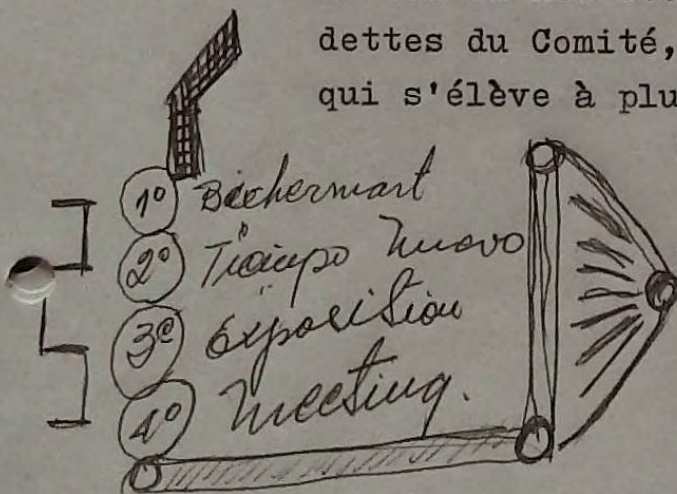 dettes du Comité,
qui s'élève à plu
1º Büchermart
2º Tiempo Nuovo
3º Exposition
4º Meeting.